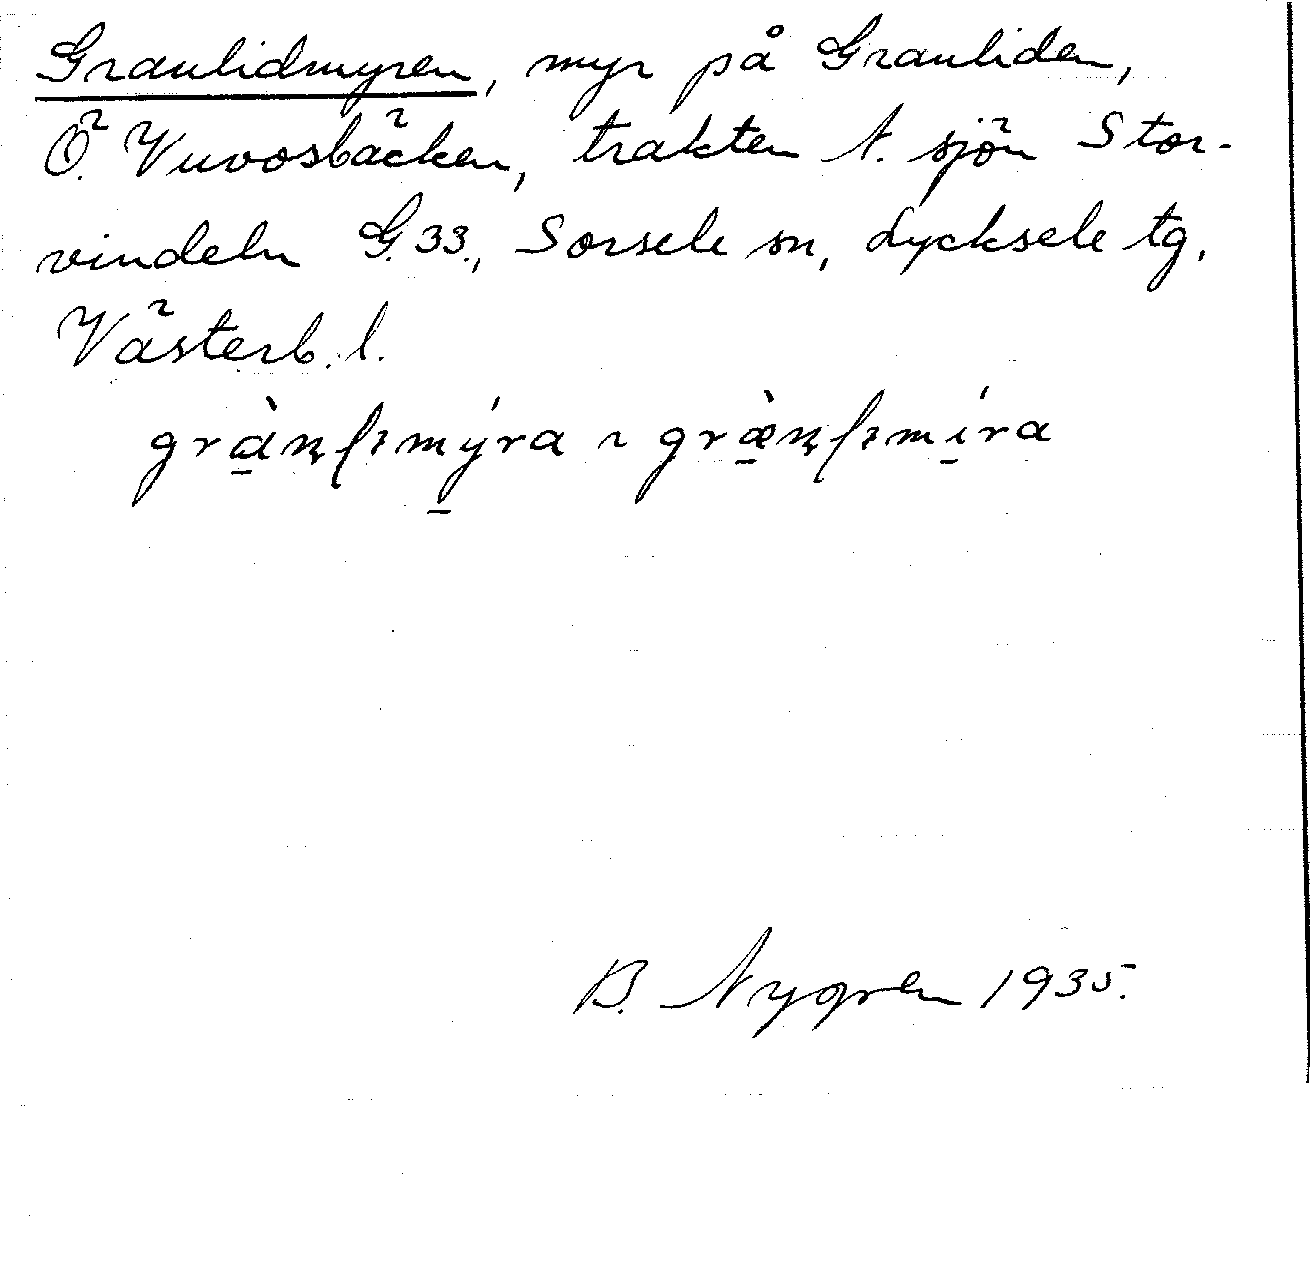 Granlidmyren, myr på Granliden,
Ö. Vuvosbäcken, trakten N. sjön Stor-
vindeln G.33., Sorsele sn, Lycksele tg,
Västerb. l.
B. Nygren 1935.